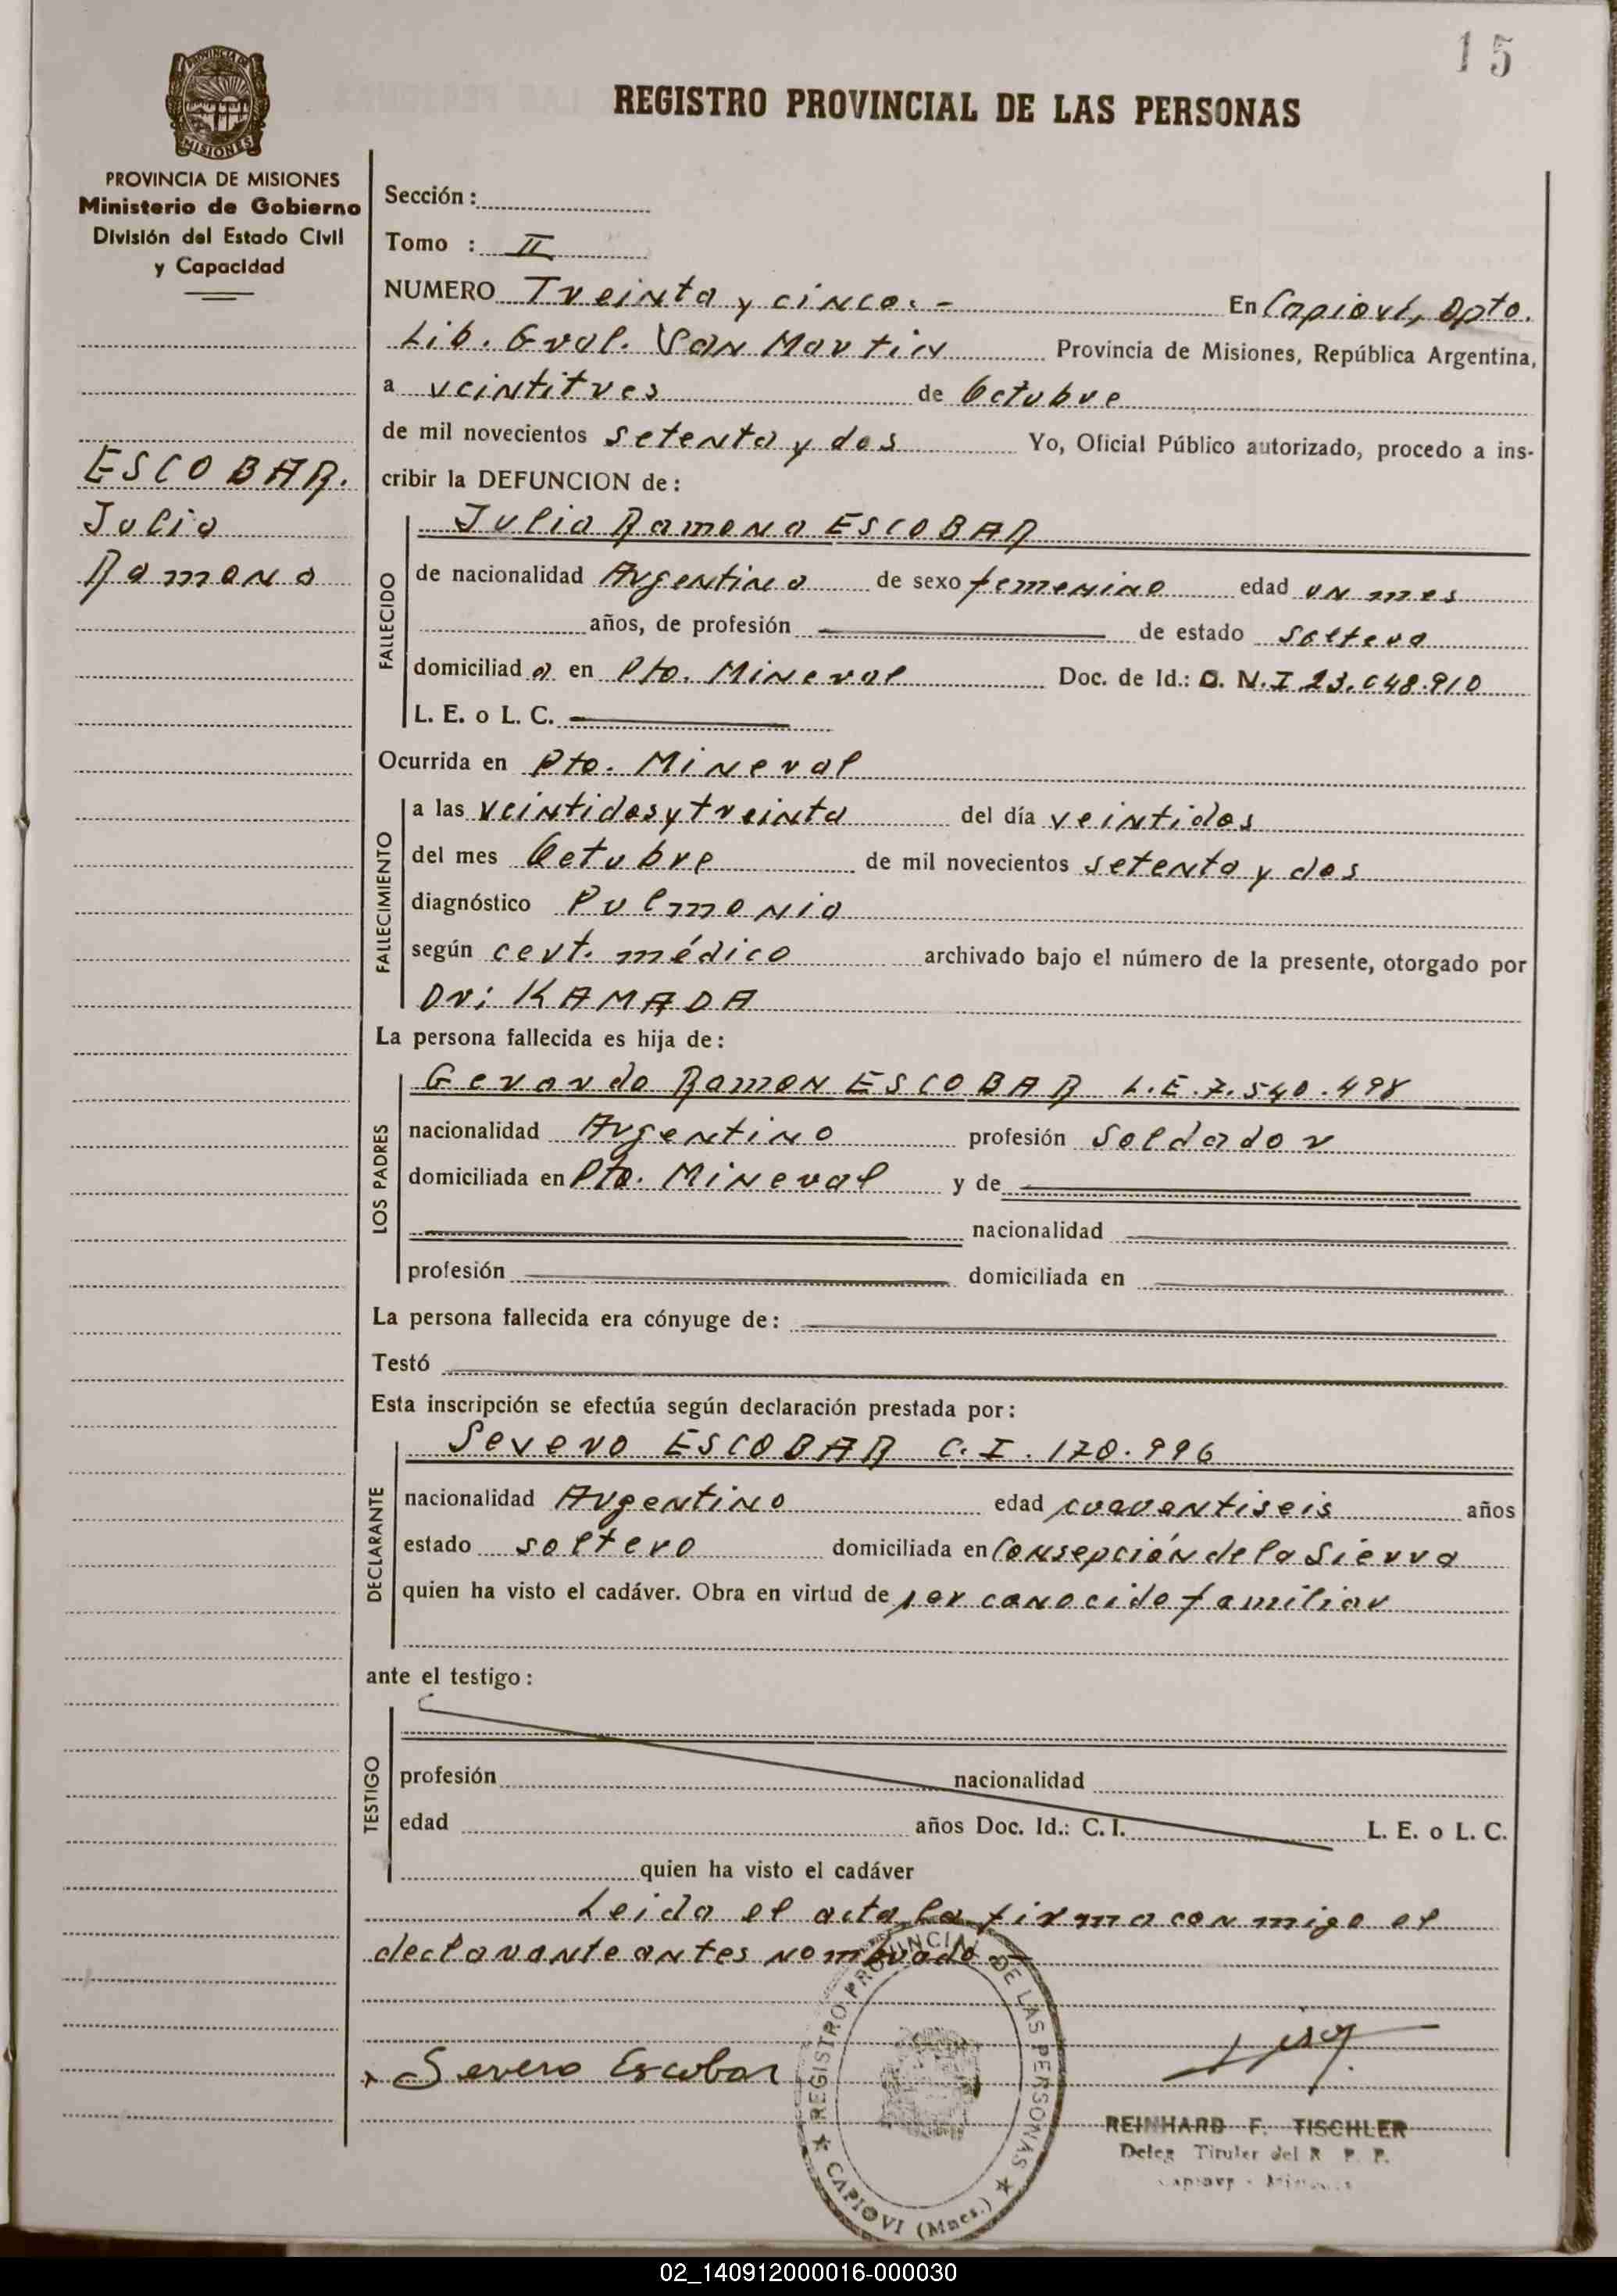 15
PROVINCIA DE MISIONES
REGISTRO PROVINCIAL DE LAS PERSONAS
PROVINCIA DE MISIONES
Ministerio de Gobierno
División del Estado Civil
y Capacidad
ESCOBAR.
Julia
Ramona
Sección:
Tomo : II
NUMERO Treinta y cinco.- En Capioví, Dpto.
Lib. Gral. San Martin Provincia de Misiones, República Argentina,
a veintitres de Octubre
de mil novecientos setenta y dos Yo, Oficial Público autorizado, procedo a ins-
cribir la DEFUNCION de:
FALLECIDO
Julia Ramona ESCOBAR
de nacionalidad Argentina de sexo femenino edad un mes
años, de profesión de estado soltera
domiciliad a en Pto. Mineral Doc. de Id.: D. N. I 23.048.910
L. E. o L. C.
Ocurrida en Pto. Mineral
FALLECIMIENTO
a las veintidos y treinta del día veintidos
del mes Octubre de mil novecientos setenta y dos
diagnóstico Pulmonia
según cert. médico archivado bajo el número de la presente, otorgado por
Dr: KAMADA
La persona fallecida es hija de:
LOS PADRES
Gerardo Ramon ESCOBAR L.E. 7.540.498
nacionalidad Argentino profesión Soldador
domiciliada en Pto. Mineral y de
nacionalidad
profesión domiciliada en
La persona fallecida era cónyuge de:
Testó
Esta inscripción se efectúa según declaración prestada por:
DECLARANTE
Severo ESCOBAR C. I. 170.996
nacionalidad Argentino edad cuarentiseis años
estado soltero domiciliada en Consepción de la Sierra
quien ha visto el cadáver. Obra en virtud de ser conocido familiar
ante el testigo:
TESTIGO
profesión nacionalidad
edad años Doc. Id.: C. I. L. E. o L. C.
quien ha visto el cadáver
Leida el acta la firma conmigo el
declarante antes nombrado.-
Severo Escobar
REGISTRO PROVINCIAL DE LAS PERSONAS
CAPIOVI (Mnes.)
REINHARD F. TISCHLER
Deleg Titular del R P. P.
02_140912000016-000030